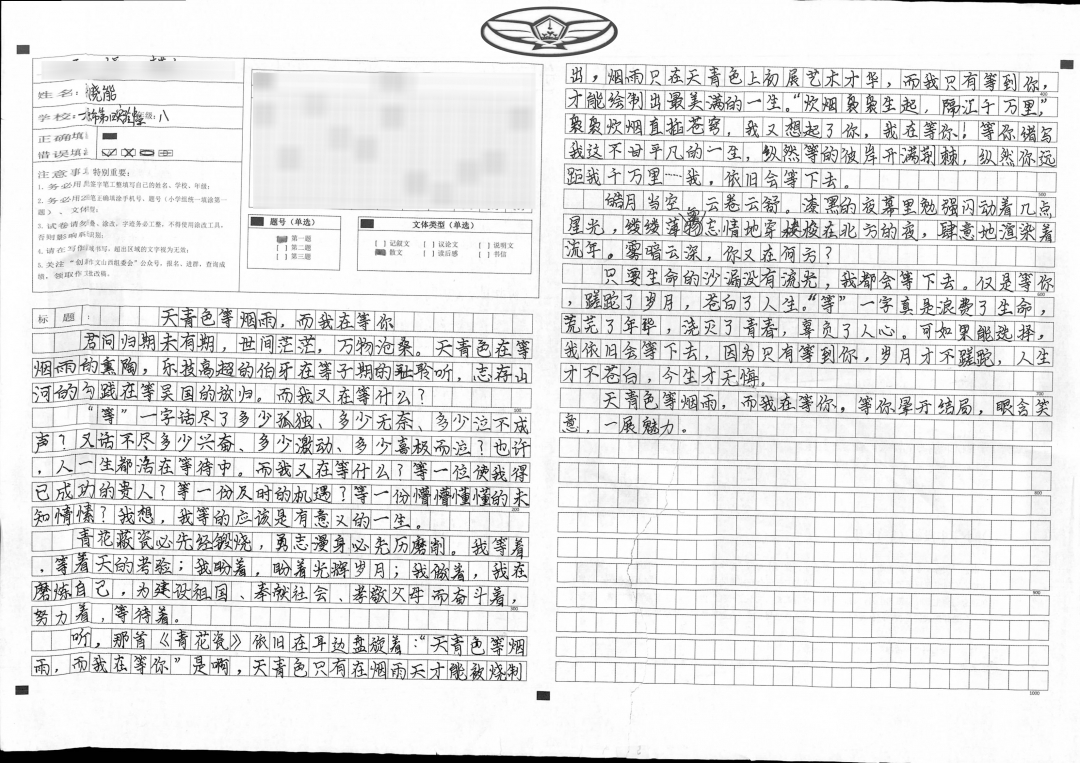 姓名：
学校： 年级：八
正确填
错误填
注意事 特别重要：
1. 务必用 黑签字笔工整填写自己的姓名、学校、年级；
2. 务必用2B 笔正确填涂手机号、题号（小学组统一填涂第一
题）、文体型；
3. 试卷请勿 涂改，字迹务必工整，不得使用涂改工具，
否则影响
4. 请在写作 域书写，超出区域的文字视为无效；
5. 关注“创新 文山西组委会”公众号，报名、进群、查询成
绩，领取作 批改稿。
题号（单选）
[ ] 第一题
[ ] 第二题
[ ] 第三题
文体类型（单选）
[ ] 记叙文 [ ] 议论文 [ ] 说明文
散文 [ ] 读后感 [ ] 书信
标 题： 天青色等烟雨，而我在等你
君问归期未有期，世间茫茫，万物沧桑。天青色在等
烟雨的熏陶，乐技高超的伯牙在等子期的耻聆听，志存山
河的勾践在等吴国的放归。而我又在等什么？
“等”一字话尽了多少孤独、多少无奈、多少泣不成
声？又话不尽多少兴奋、多少激动、多少喜极而泣？也许
，人一生都活在等待中。而我又在等什么？等一位使我得
已成功的贵人？等一份及时的机遇？等一份懵懵懂懂的未
知情愫？我想，我等的应该是有意义的一生。
青花瓷必先经锻烧，勇志漫身必先历磨削。我等着
，等着天的考验；我盼着，盼着光辉岁月；我做着，我在
磨炼自己，为建设祖国、奉献社会、孝敬父母而奋斗着，
努力着，等待着。
听，那首《青花瓷》依旧在耳边盘旋着：“天青色等烟
雨，而我在等你”是啊，天青色只有在烟雨天才能被烧制
出，烟雨只在天青色上初展艺术才华，而我只有等到你，
才能绘制出最美满的一生。“炊烟袅袅生起，隔江千万里”，
袅袅炊烟直插苍穹，我又想起了你，我在等你！等你谱写
我这不甘平凡的一生，纵然等的彼岸开满荆棘，纵然你远
距我千万里……我，依旧会等下去。
皓月当空，云卷云舒。漆黑的夜幕里勉强闪动着几点
星光，缕缕薄雾忘情地穿梭在北方的夜，肆意地渲染着
流年。雾暗云深，你又在何方？
只要生命的沙漏没有流光，我都会等下去。仅是等你
，蹉跎了岁月，苍白了人生。“等”一字真是浪费了生命，
荒芜了年轻，浇灭了青春，辜负了人心。可如果能选择，
我依旧会等下去，因为只有等到你，岁月才不蹉跎，人生
才不苍白，今生才无悔。
天青色等烟雨，而我在等你。等你掌开结局，眼含笑
意，一展魅力。
100
200
300
400
500
600
700
800
900
1000